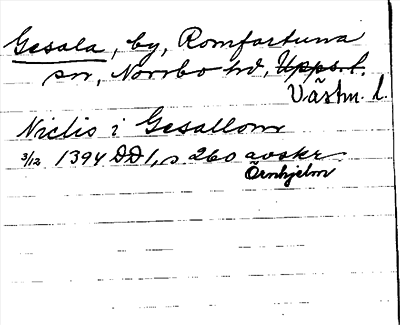 Gesala, by, Romfartuna
sn, Norrbo hd, Upps. l.
Västm. l.
Niclis i Gesallom
3/12 1394 DD 1, s 260 avskr
Örnhjelm